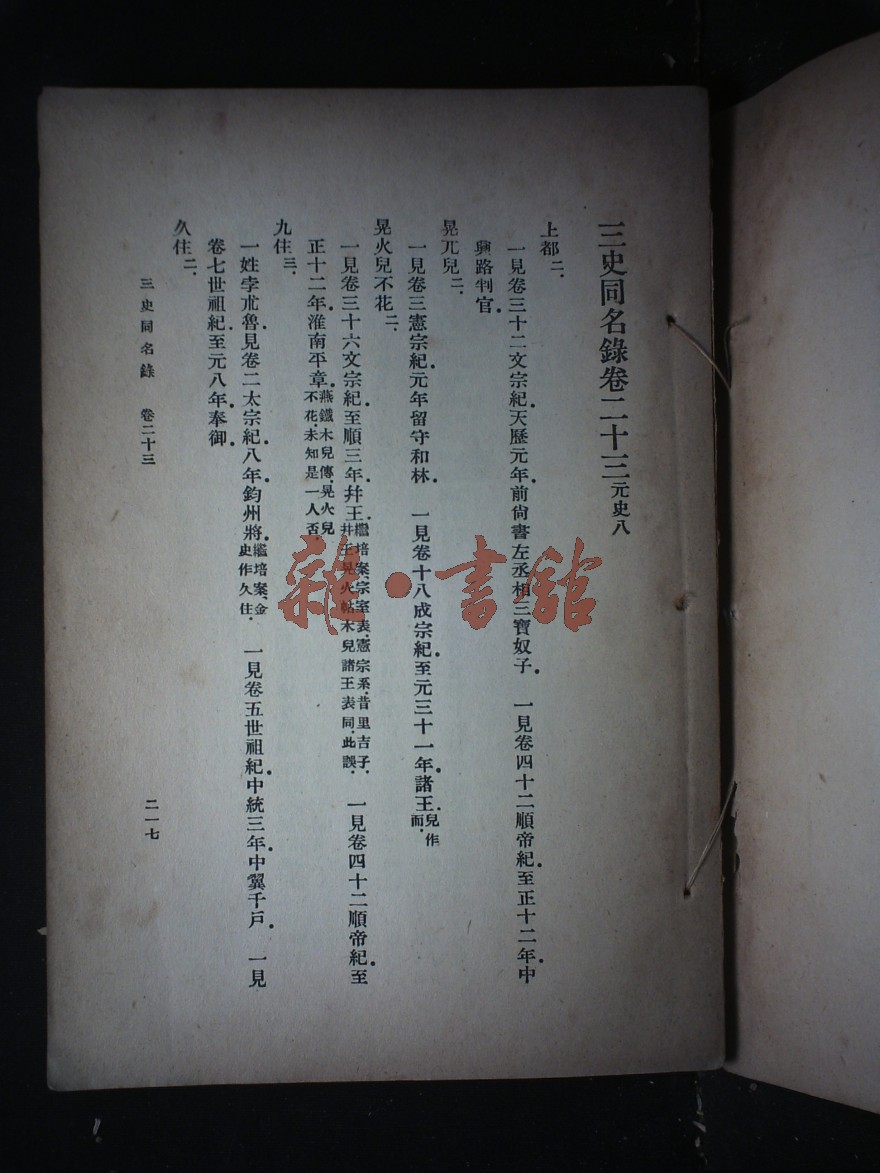 三史同名錄卷二十三 元史八
上都二.
一見卷三十二文宗紀.天歷元年.前尚書左丞相三寶奴子. 一見卷四十二順帝紀.至正十二年.中
興路判官.
晃兀兒二.
一見卷三憲宗紀.元年留守和林. 一見卷十八成宗紀.至元三十一年.諸王.兒作而.
晃火兒不花二.
一見卷三十六文宗紀.至順三年.幷王.繼培案.宗室表.憲宗系.昔里吉子.幷王晃火帖木兒諸王表同.此誤. 一見卷四十二順帝紀.至
正十二年.淮南平章.燕鐵木兒傳.晃火兒不花.未知是一人否.
九住三.
一姓孛朮魯.見卷二太宗紀.八年.鈞州將.繼培案.金史作久住. 一見卷五世祖紀.中統三年.中翼千戶. 一見
卷七世祖紀.至元八年.奉御.
久住二.
三史同名錄 卷二十三
二一七
雜·書館